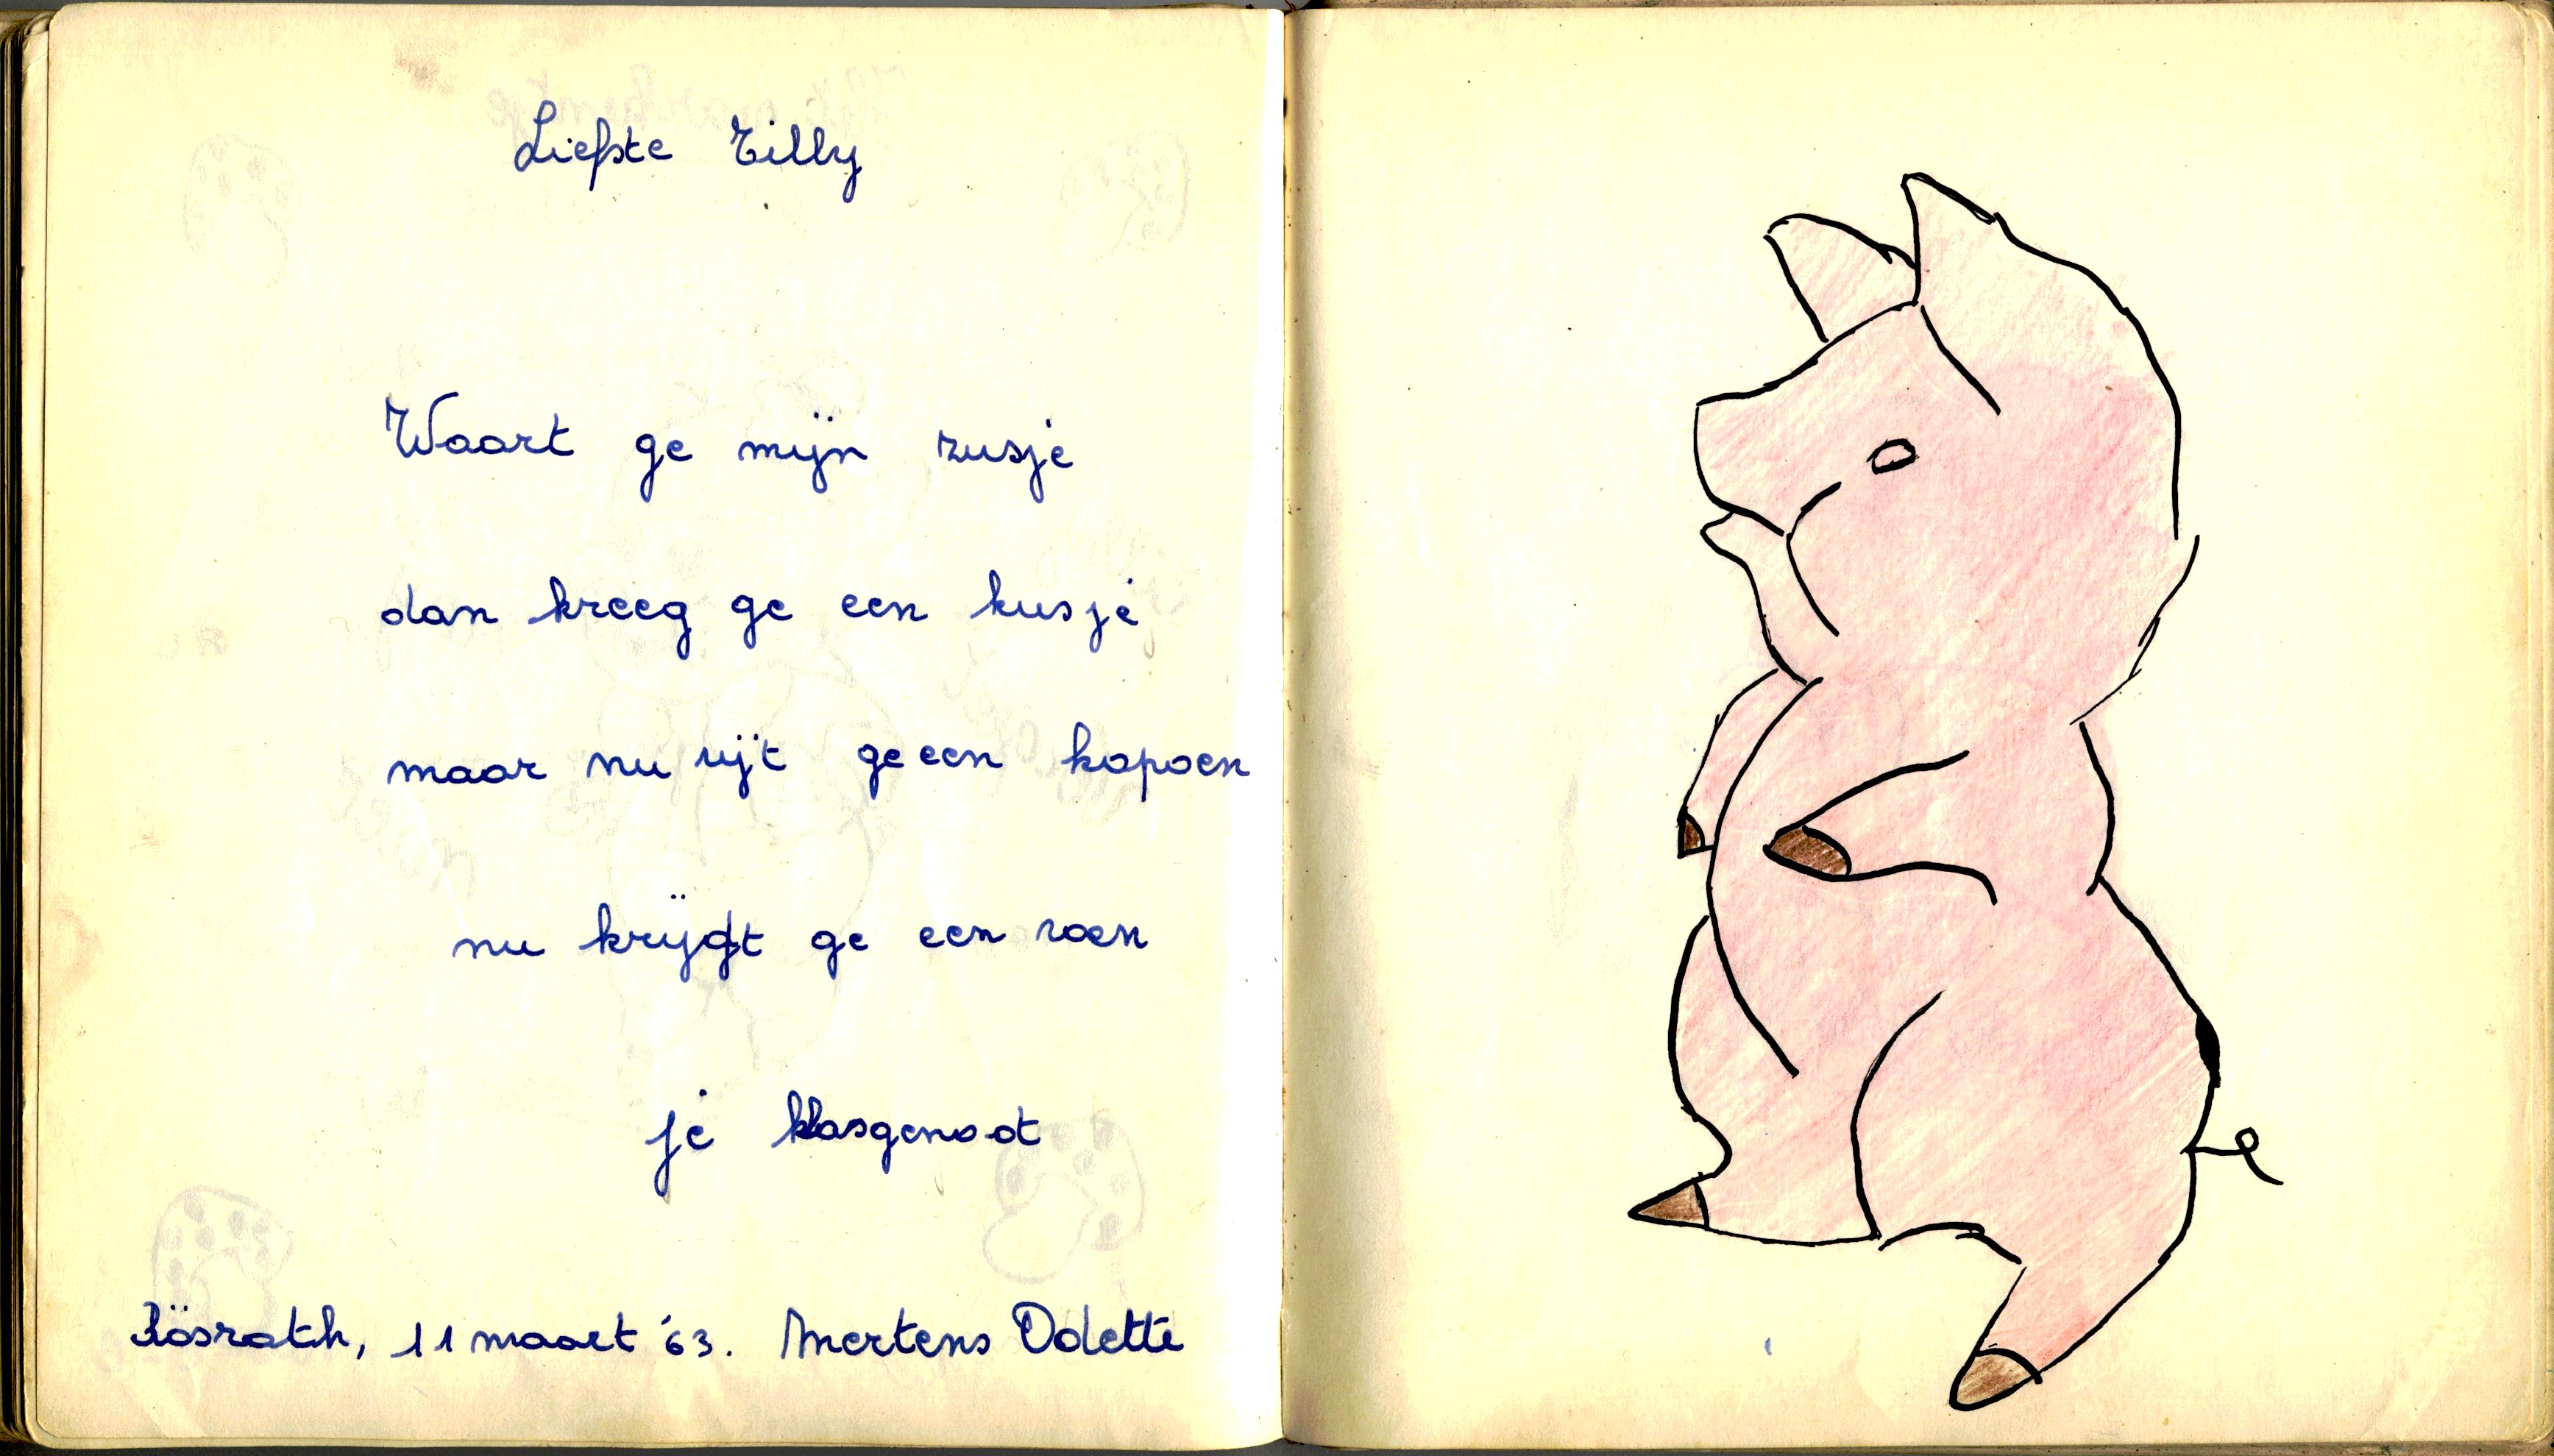 Liefste Tilly
Waart ge mijn zusje
dan kreeg ge een kusje
maar nu zijt ge een kapoen
nu krijgt ge een zoen
je klasgenoot
Rösrath, 11 maart '63. Mertens Odette